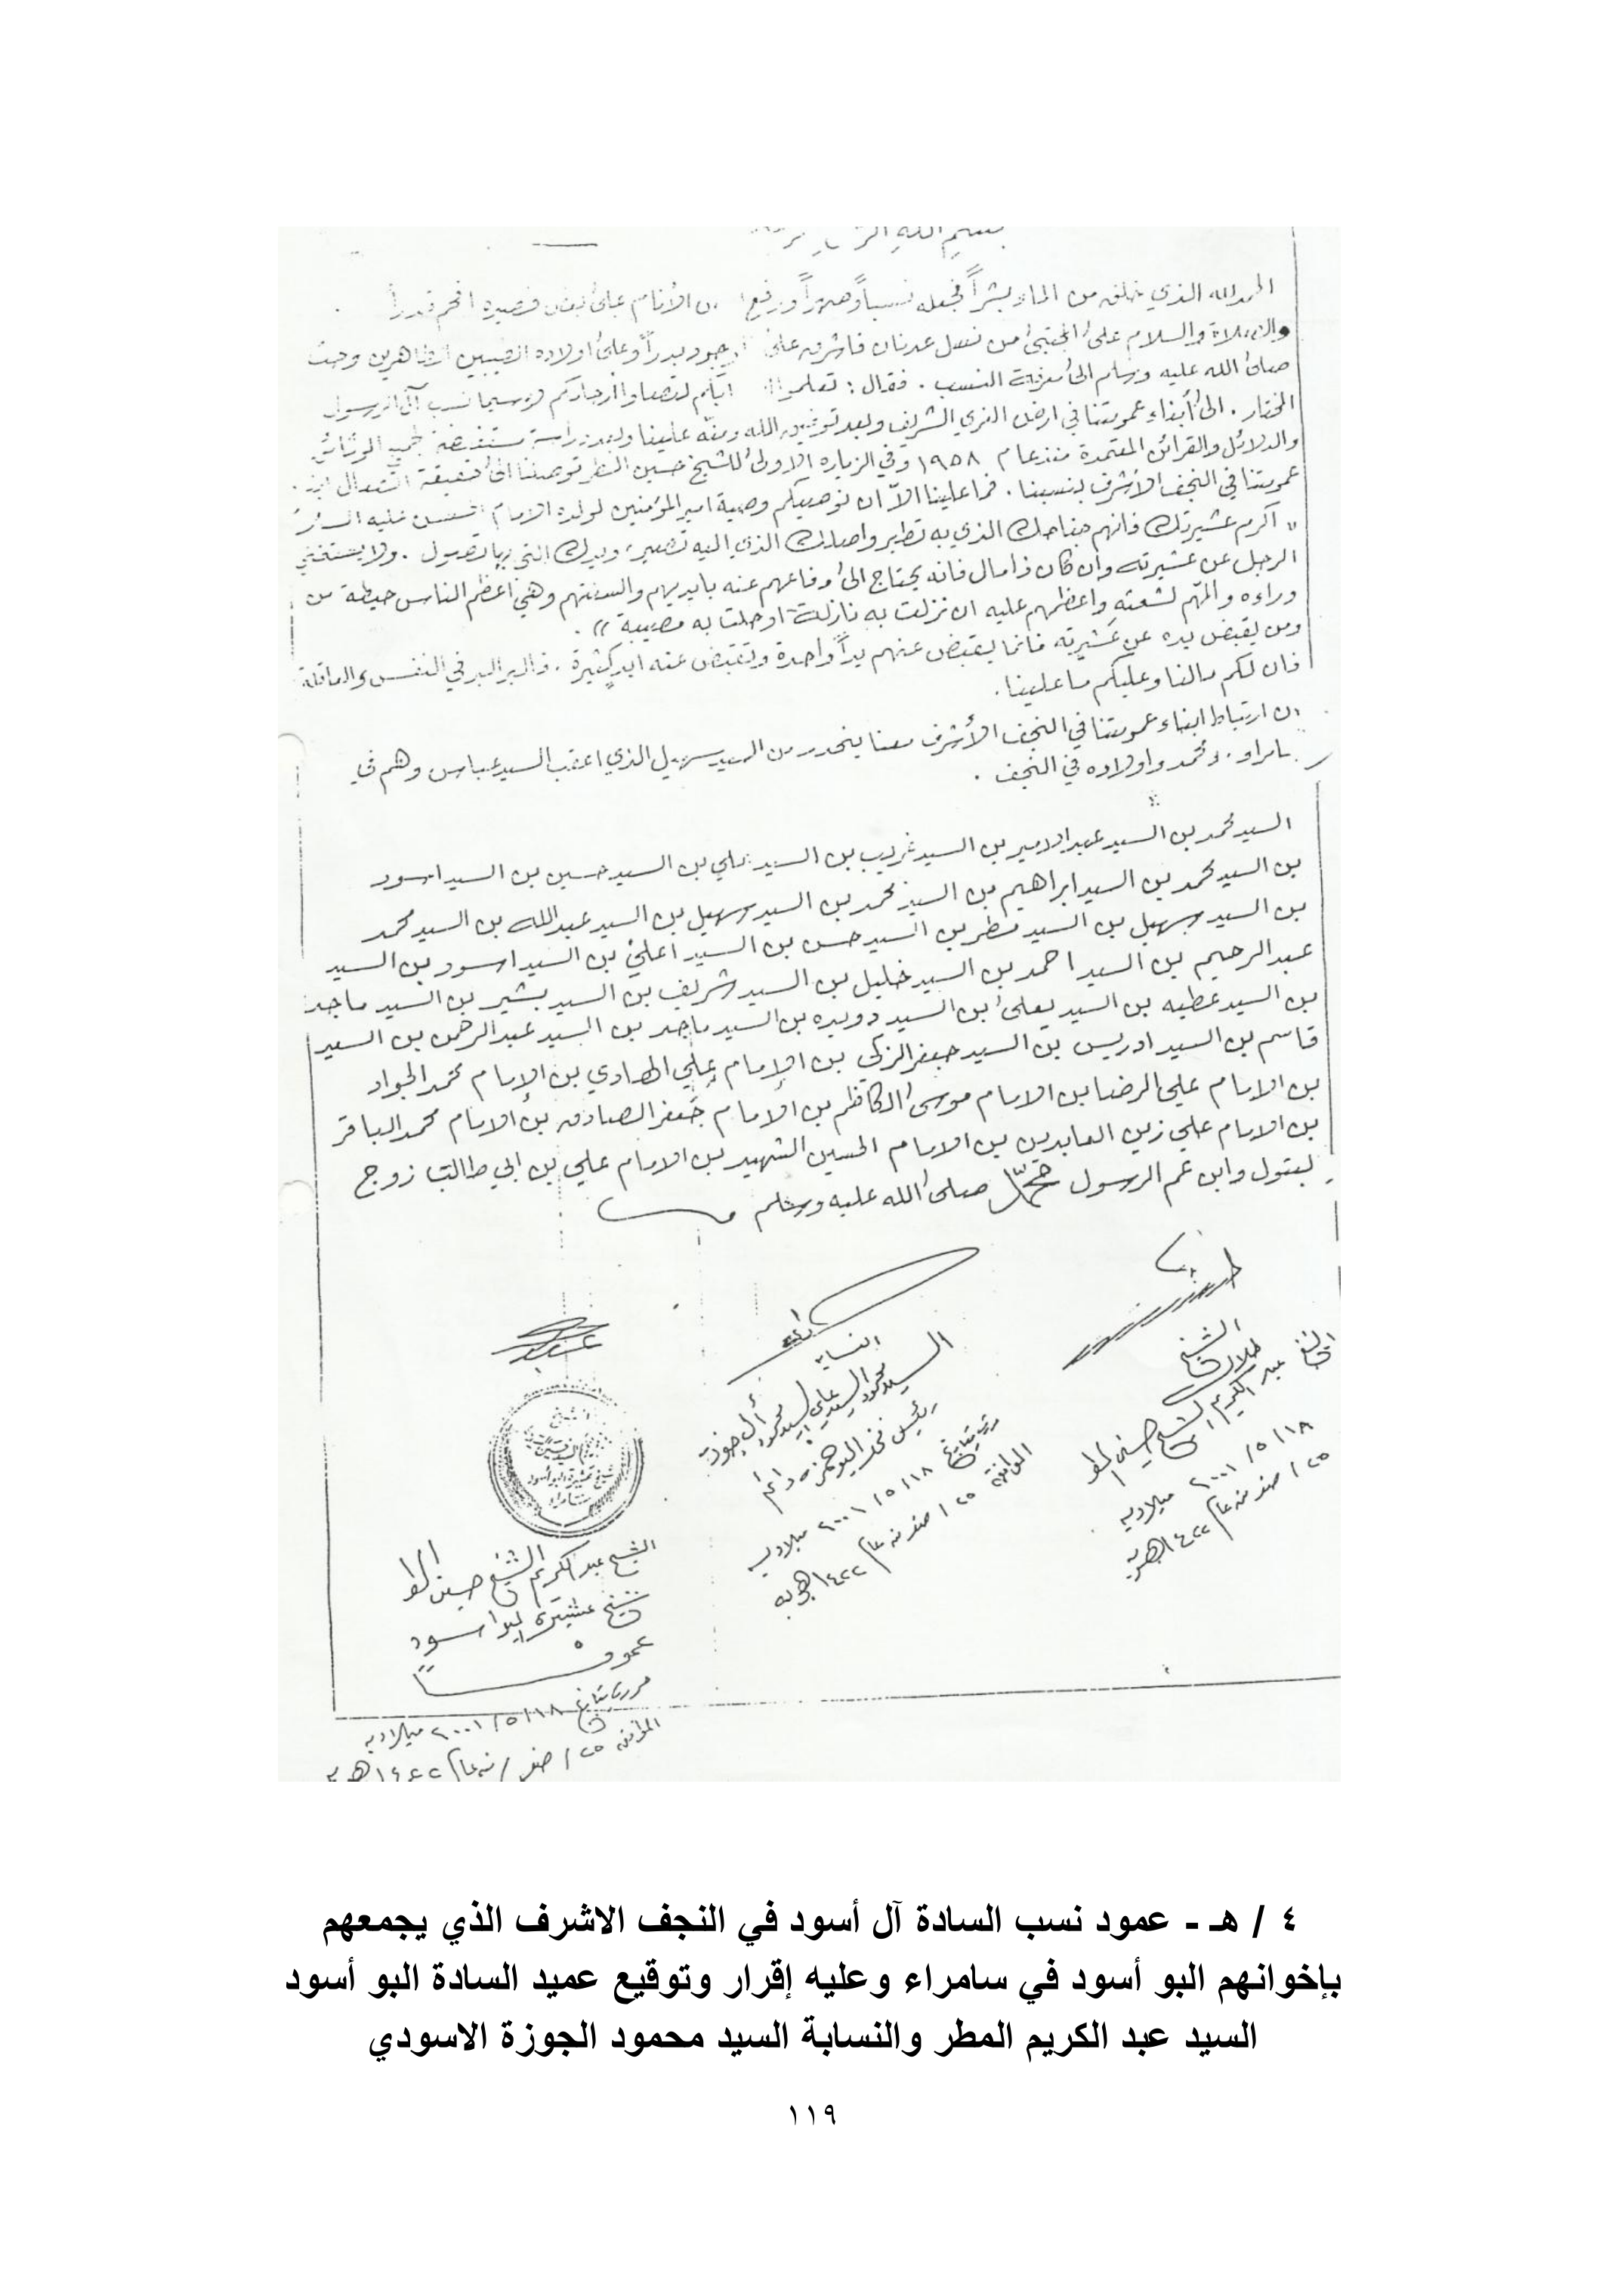 بسم الله
الحمد لله الذي خلق من الماء بشراً فجعله نسباً وصهراً ورفع الأنام على بعض فصيره افخم قدراً
والصلاة والسلام على المجتبى من نسل عدنان فاشرق على الوجود بدراً وعلى اولاده الطيبين الطاهرين وحث
صلى الله عليه وسلم الى معرفة النسب . فقال : تعلموا لتصلوا ارحامكم لاسيما نسب آل الرسول
المختار . الى أبناء عمومتنا في ارض الغري الشريف وبعد توفيق الله ومنّه علينا وبعد دراسة مستفيضة لجميع الوثائق
والدلائل والقرائن المعتمدة منذ عام ١٩٥٨ وفي الزيارة الاولى للشيخ حسين المطر توصلنا الى حقيقة اتصال ابناء
عمومتنا في النجف الأشرف بنسبنا . فما علينا الاّ ان نوصيكم وصية امير المؤمنين لولده الامام الحسن عليه السلام
(( اكرم عشيرتك فانهم جناحك الذي به تطير واصلك الذي اليه تصير، ويدك التي بها تصول . ولا يستغني
الرجل عن عشيرته وان كان ذا مال فانه يحتاج الى دفاعهم عنه بايديهم والسنتهم وهي اعظم الناس حيطة من
وراءه والمّهم لشعثه واعظمهم عليه ان نزلت به نازلة او حلت به مصيبة )) .
ومن يقبض يده عن عشيرته فانما يقبض عنهم يداً واحدة وتقبض عنه ايدٍ كثيرة . فالبر البر في النفس والعاقلة
فان لكم مالنا وعليكم ما علينا .
ان ارتباط ابناء عمومتنا في النجف الأشرف معنا ينحدر من السيد سهيل الذي اعقب السيد عباس وهم في
سامراء . ومحمد واولاده في النجف .
السيد محمد بن السيد عبد الامير بن السيد غريب بن السيد علي بن السيد حسين بن السيد اسود
بن السيد محمد بن السيد ابراهيم بن السيد محمد بن السيد سهيل بن السيد عبدالله بن السيد محمد
بن السيد سهيل بن السيد مطر بن السيد حسن بن السيد اعلي بن السيد اسود بن السيد
عبدالرحيم بن السيد احمد بن السيد خليل بن السيد شريف بن السيد بشير بن السيد ماجد
بن السيد عطيه بن السيد يعلى بن السيد دويده بن السيد ماجد بن السيد عبدالرحمن بن السيد
قاسم بن السيد ادريس بن السيد جعفر الزكي بن الإمام علي الهادي بن الإمام محمد الجواد
بن الامام علي الرضا بن الامام موسى الكاظم بن الأمام جعفر الصادق بن الامام محمد الباقر
بن الامام علي زين العابدين بن الامام الحسين الشهيد بن الامام علي بن ابي طالب زوج
البتول وابن عم الرسول محمد صلى الله عليه وسلم
الشيخ
طلال
عبد الكريم الشيخ حسين المطر
١٨ / ٥ / ٢٠٠١ ميلاديه
٢٥ / صفر سنه عام ١٤٢٢ هجريه
النسابه
السيد محمود السيد علي السيد محمود آل جوزة
رئيس فخذ البو حمزه دائم
١٨ / ٥ / ٢٠٠١ ميلاديه
الموافق ٢٥ / صفر سنه عام ١٤٢٢ هجريه
شيخ عشيرة البو أسود
سامراء
الشيخ عبد الكريم الشيخ حسين المطر
شيخ عشيرة البو اسود
عموماً
حرر بتاريخ ١٨ / ٥ / ٢٠٠١ ميلاديه
الموافق ٢٥ / صفر / سنه عام ١٤٢٢ هـ
٤ / هـ - عمود نسب السادة آل أسود في النجف الاشرف الذي يجمعهم
بإخوانهم البو أسود في سامراء وعليه إقرار وتوقيع عميد السادة البو أسود
السيد عبد الكريم المطر والنسابة السيد محمود الجوزة الاسودي
١١٩